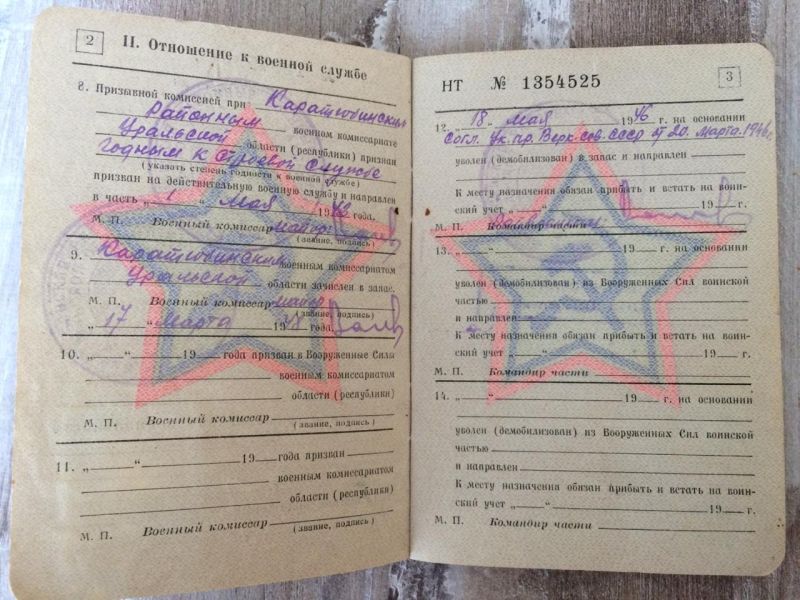 2
II. Отношение к военной службе
8. Призывной комиссией при Каратюбинским
Районным военном комиссариате
Уральской области (республики) признан
годным к строевой службе
(указать степень годности к военной службе)
призван на действительную военную службу и направлен
в часть „ 1 " Мая 19 года.
М. П. Военный комиссар майор
(звание, подпись)
9. Каратюбинским военным комиссариатом
Уральской области зачислен в запас.
М. П. Военный комиссар майор
(звание, подпись)
„ 17 " Марта 19 48 года.
10. „ " 19 года призван в Вооруженные Силы
военным комиссариатом
области (республики)
М. П. Военный комиссар
(звание, подпись)
11. „ " 19 года призван
военным комиссариатом
области (республики)
М. П. Военный комиссар
(звание, подпись)
НТ № 1354525
3
12. „ 18 " мая 1946 г. на основании
Согл. Ук. пр. Верх. сов. СССР от 20. Марта. 1946 г.
уволен (демобилизован) в запас и направлен
К месту назначения обязан прибыть и встать на воин-
ский учет „ " 19 г.
М. П. Командир части
13. „ " 19 г. на основании
уволен (демобилизован) из Вооруженных Сил воинской
частью
и направлен
К месту назначения обязан прибыть и встать на воин-
ский учет „ " 19 г.
М. П. Командир части
14. „ " 19 г. на основании
уволен (демобилизован) из Вооруженных Сил воинской
частью
и направлен
К месту назначения обязан прибыть и встать на воин-
ский учет „ " 19 г.
М. П. Командир части